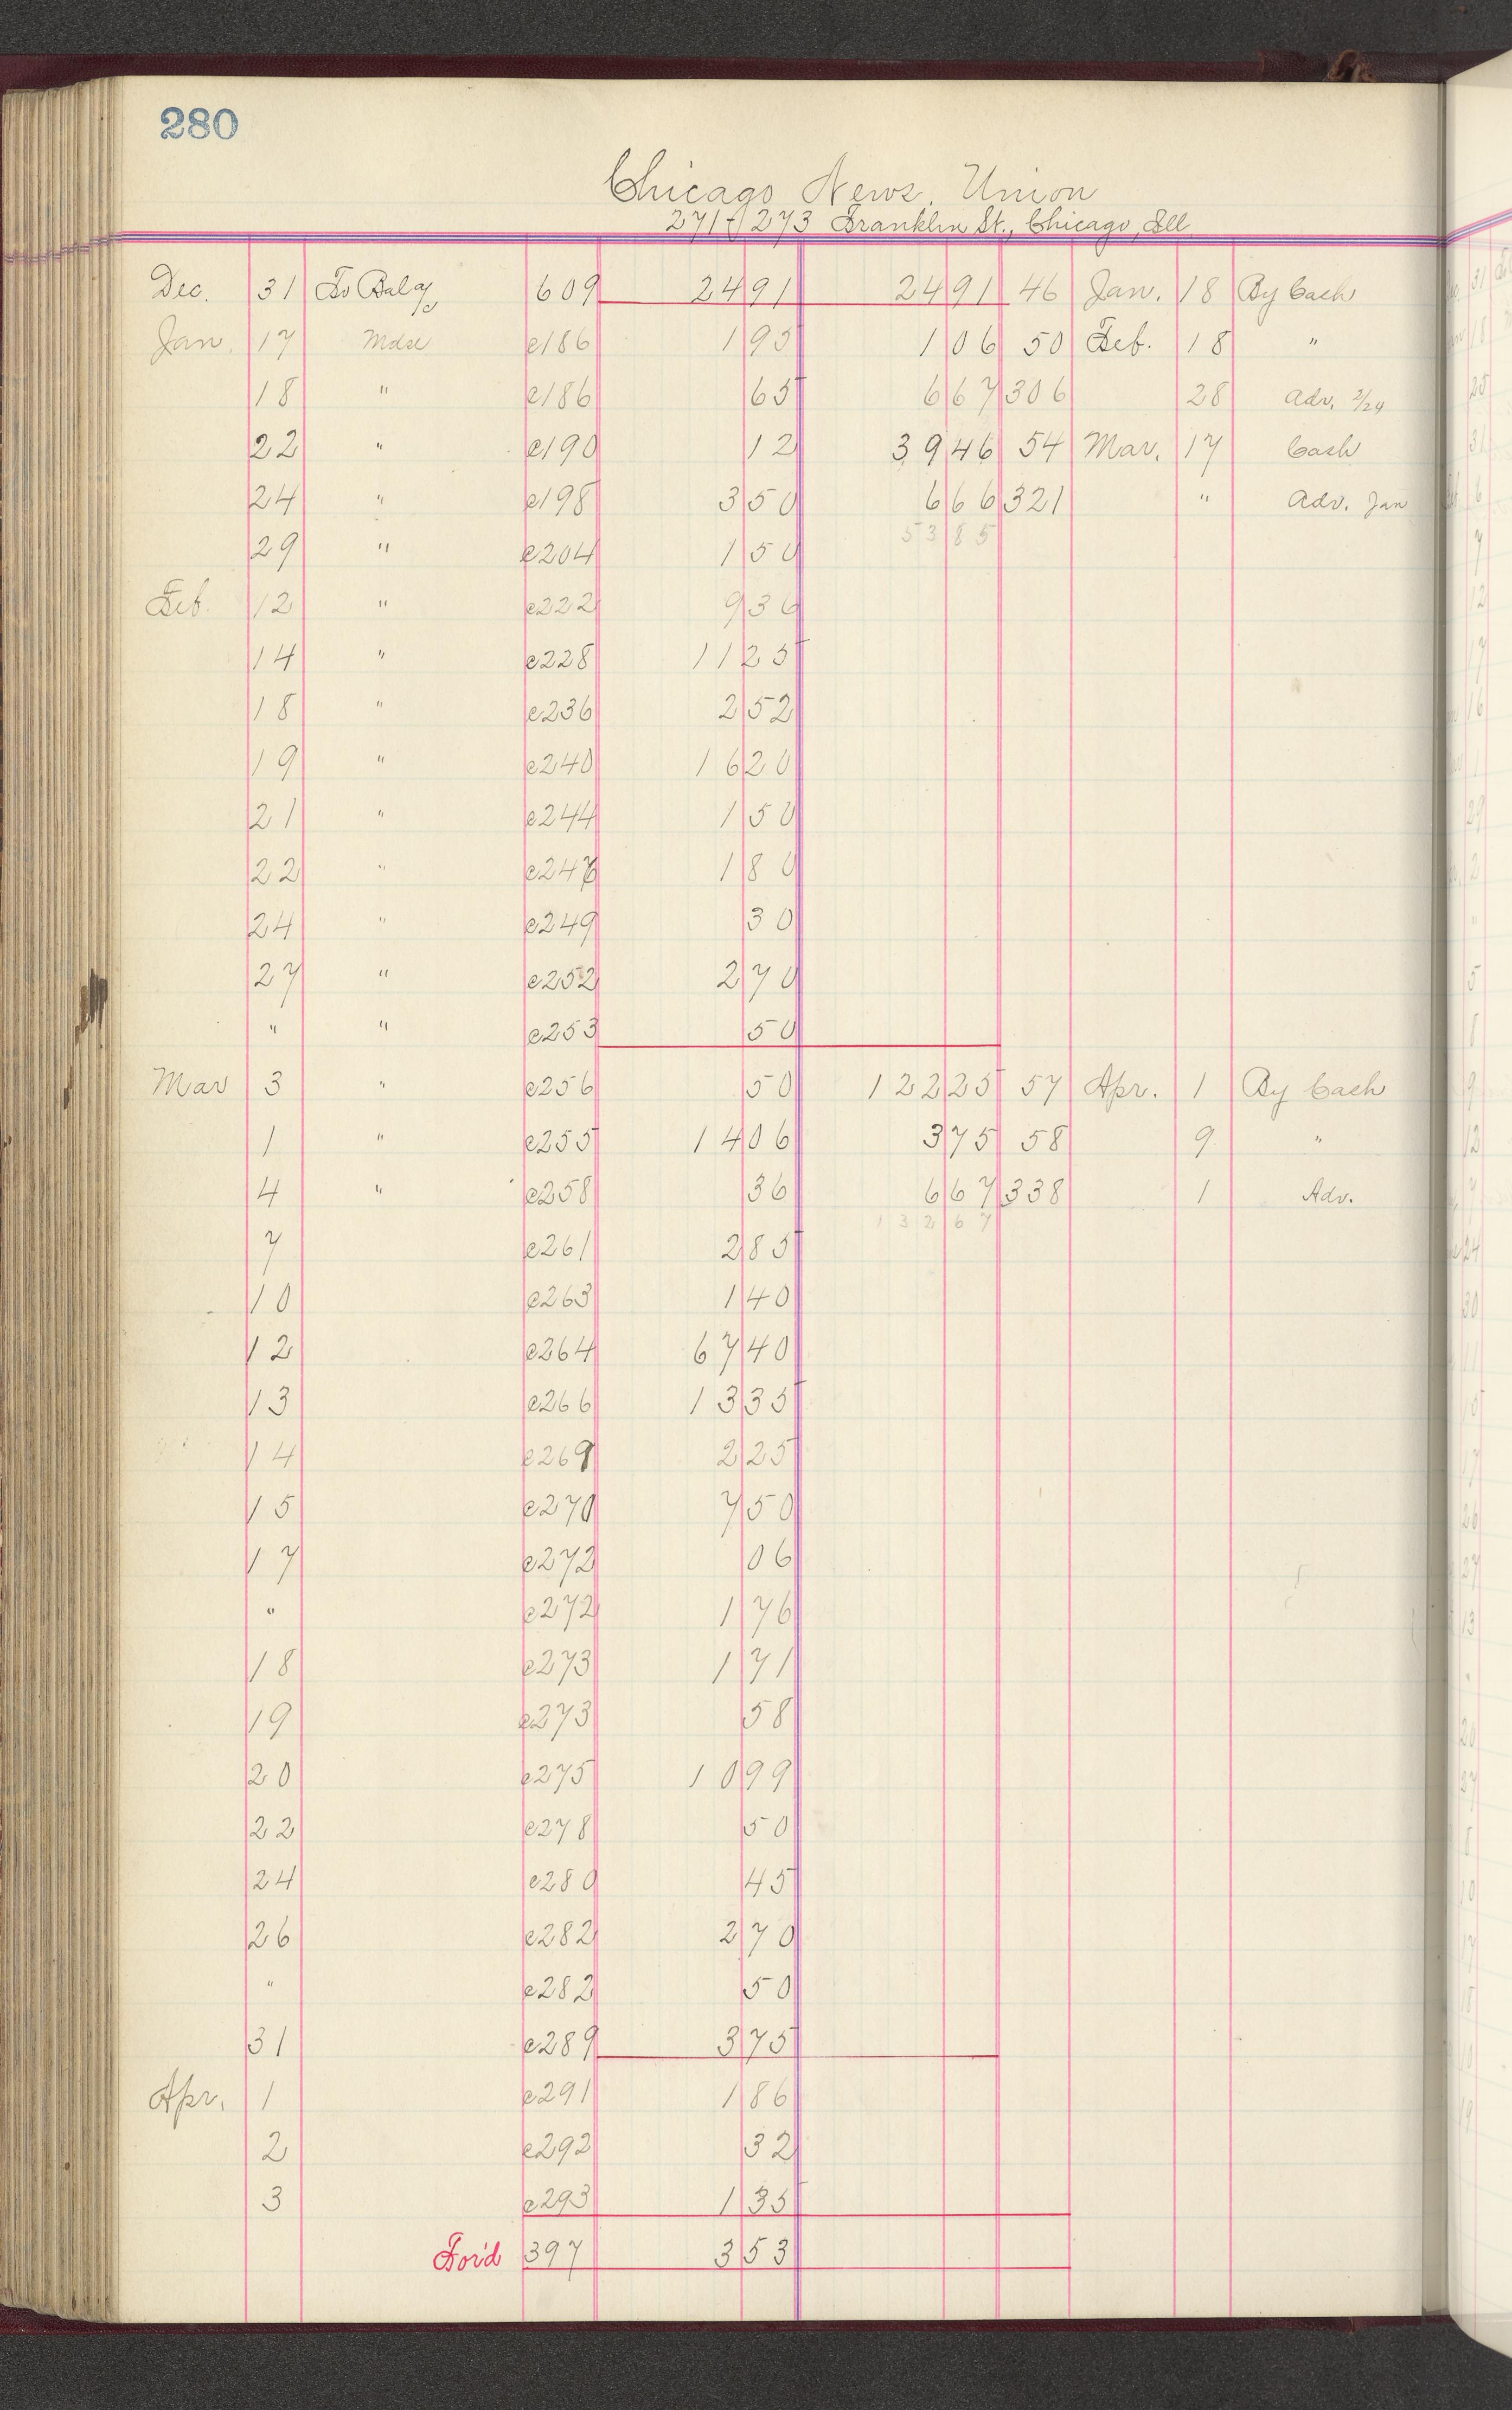 280
Chicago News Union
271-273 Franklin St., Chicago, Ill
Dec. 31 To Bal a/c 609 2491 2491 46 Jan. 18 By Cash
Jan. 17 Mdse c186 195 106 50 Feb. 18 "
18 " c186 65 667 306 28 Adv. 2/24
22 " c190 12 3946 54 Mar. 17 Cash
24 " c198 350 666 321 " Adv. Jan
5385
29 " c204 150
Feb. 12 " c222 936
14 " c228 1125
18 " c236 252
19 " c240 1620
21 " c244 150
22 " c247 180
24 " c249 30
27 " c252 270
" " c253 50
Mar 3 " c256 50 12225 57 Apr. 1 By Cash
1 " c255 1406 375 58 9 "
4 " c258 36 667 338 1 Adv.
13267
7 c261 285
10 c263 140
12 c264 6740
13 c266 1335
14 c269 225
15 c270 750
17 c272 06
" c272 176
18 c273 171
19 c273 58
20 c275 1099
22 c278 50
24 c280 45
26 c282 270
" c282 50
31 c289 375
Apr. 1 c291 186
2 c292 32
3 c293 135
For'd 397 353